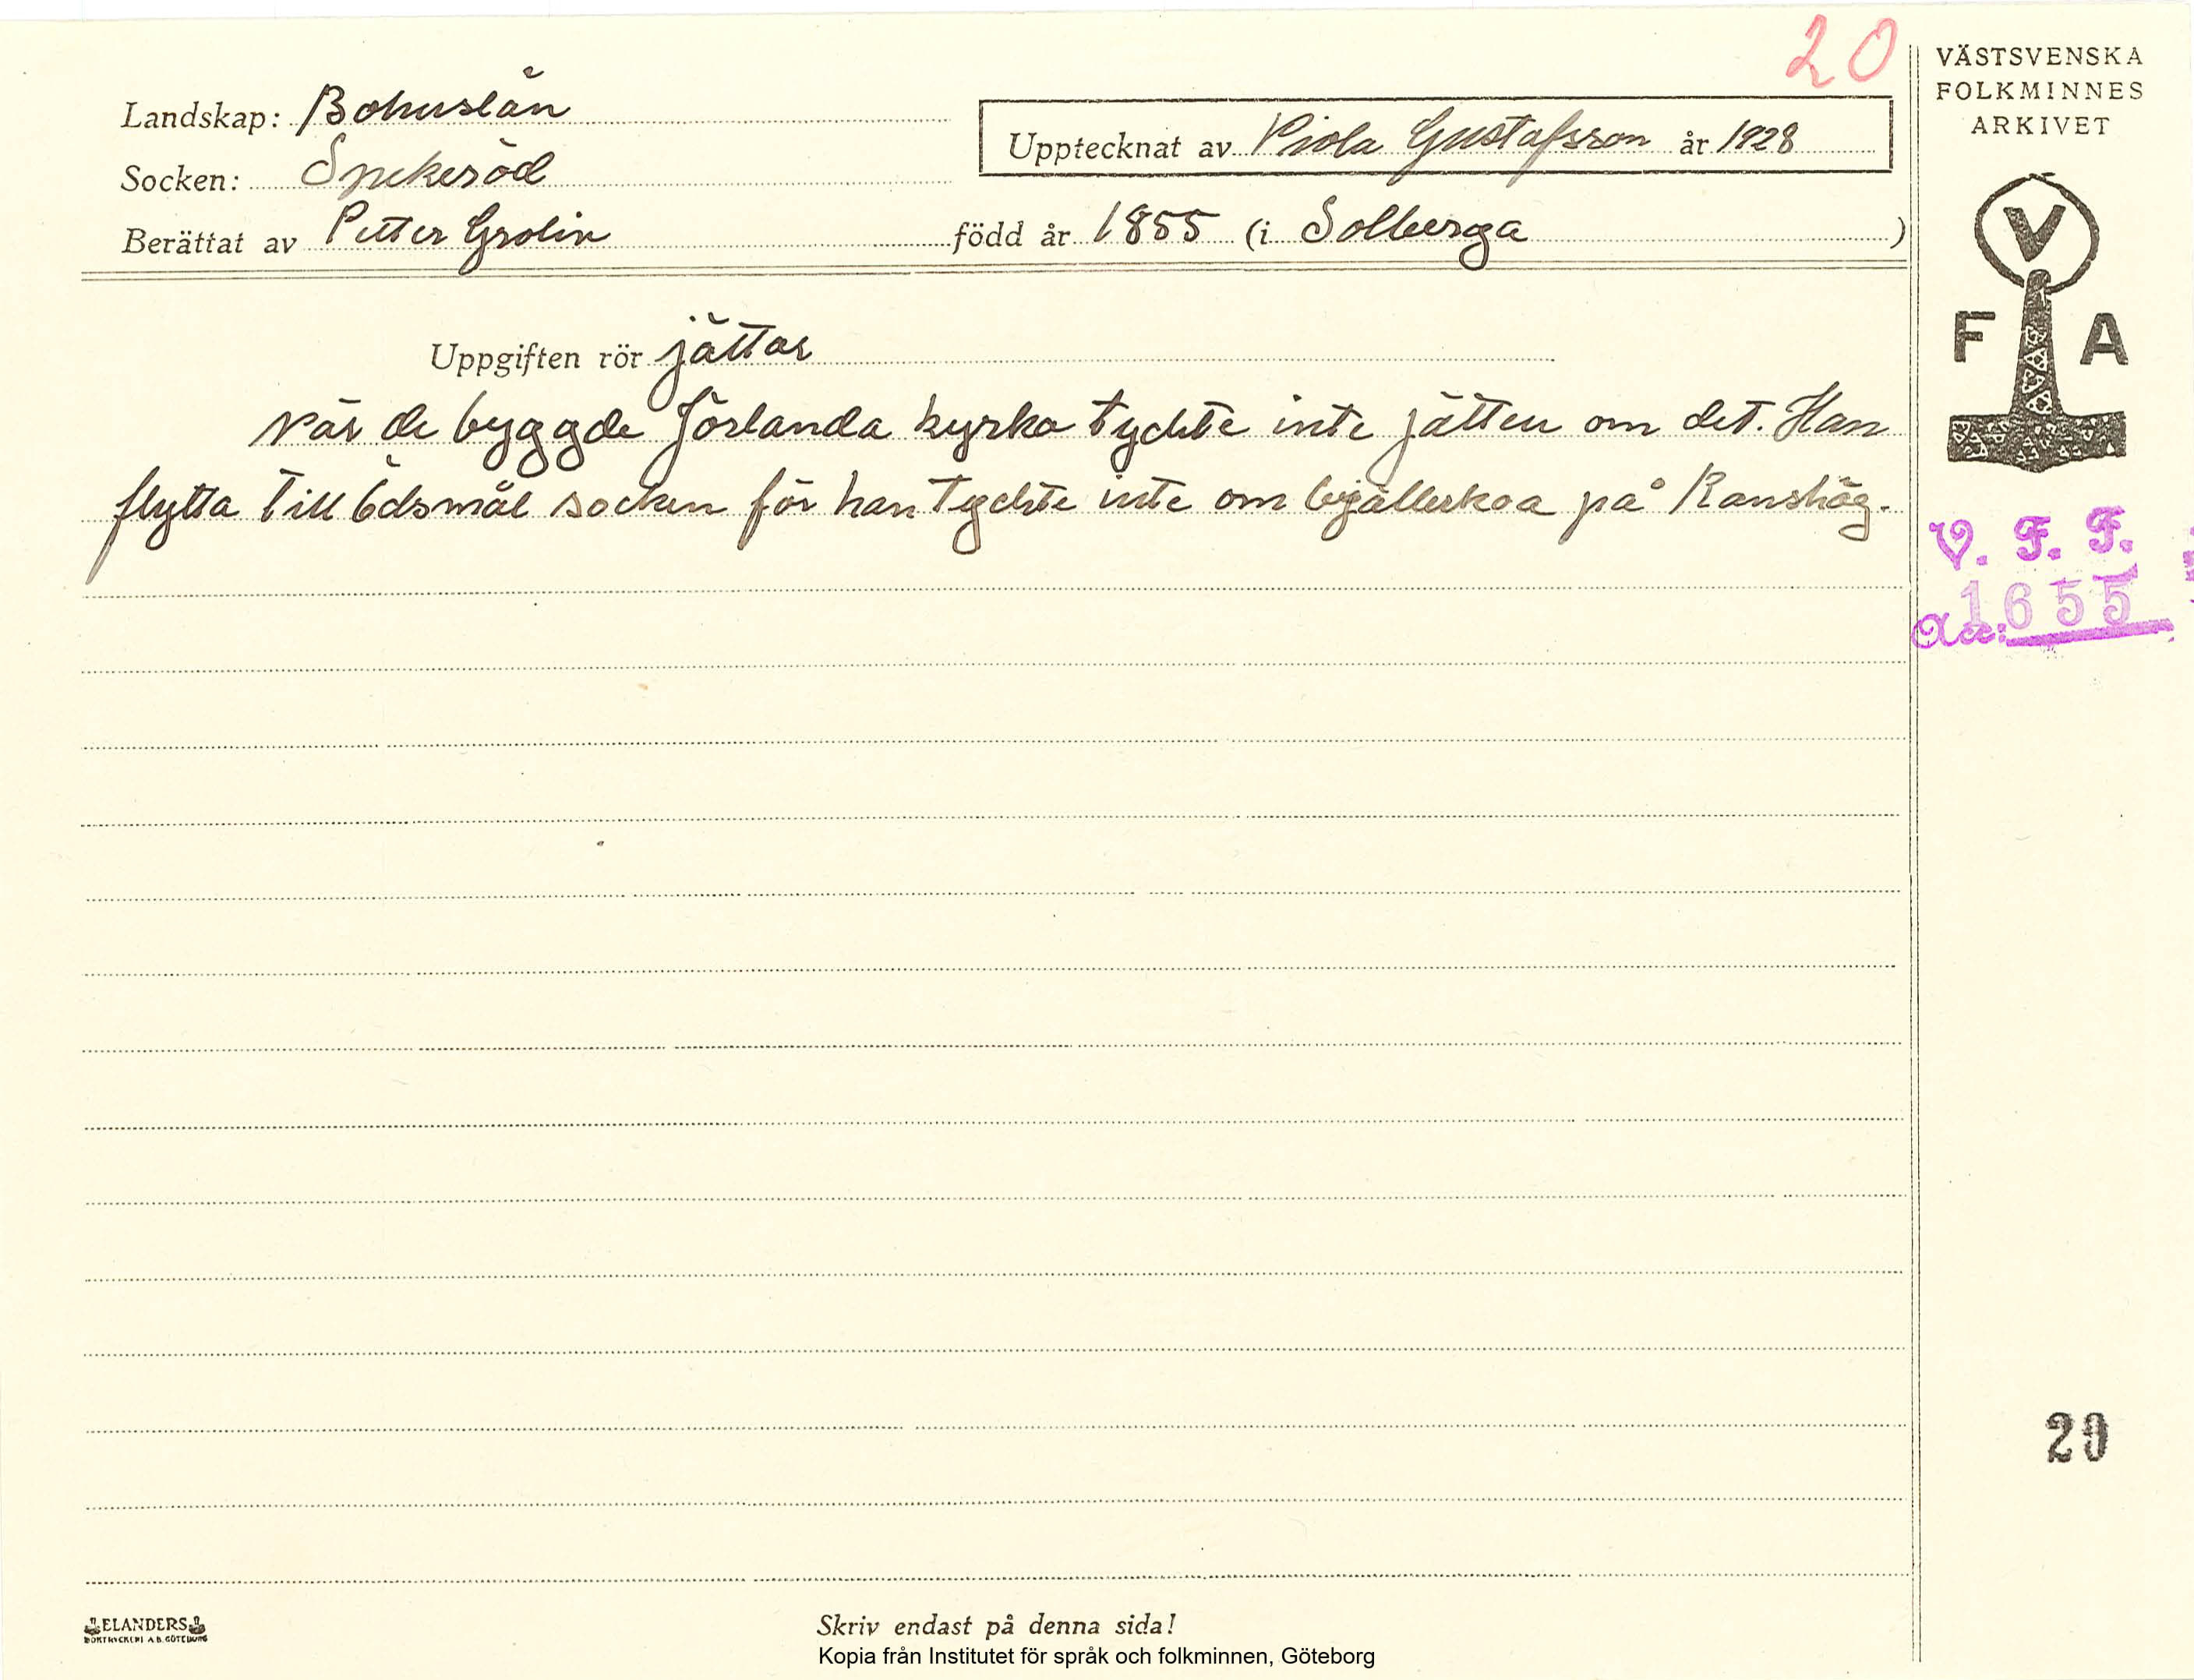 20
VÄSTSVENSKA
FOLKMINNES
ARKIVET
Landskap: Bohuslän
Upptecknat av Viola Gustafsson år 1928
Socken: Spekeröd
Berättat av Petter Grolin född år 1855 (i Solberga )
V
F A
Uppgiften rör jättar
När de byggde Jörlanda kyrka tyckte inte jätten om det. Han
flytta till Ödsmål socken för han tyckte inte om bjällerkoa på Ranshög.
V. F. F.
Acc: 1655
20
ELANDERS
BOKTRYCKERI A.B. GÖTEBORG
Skriv endast på denna sida!
Kopia från Institutet för språk och folkminnen, Göteborg